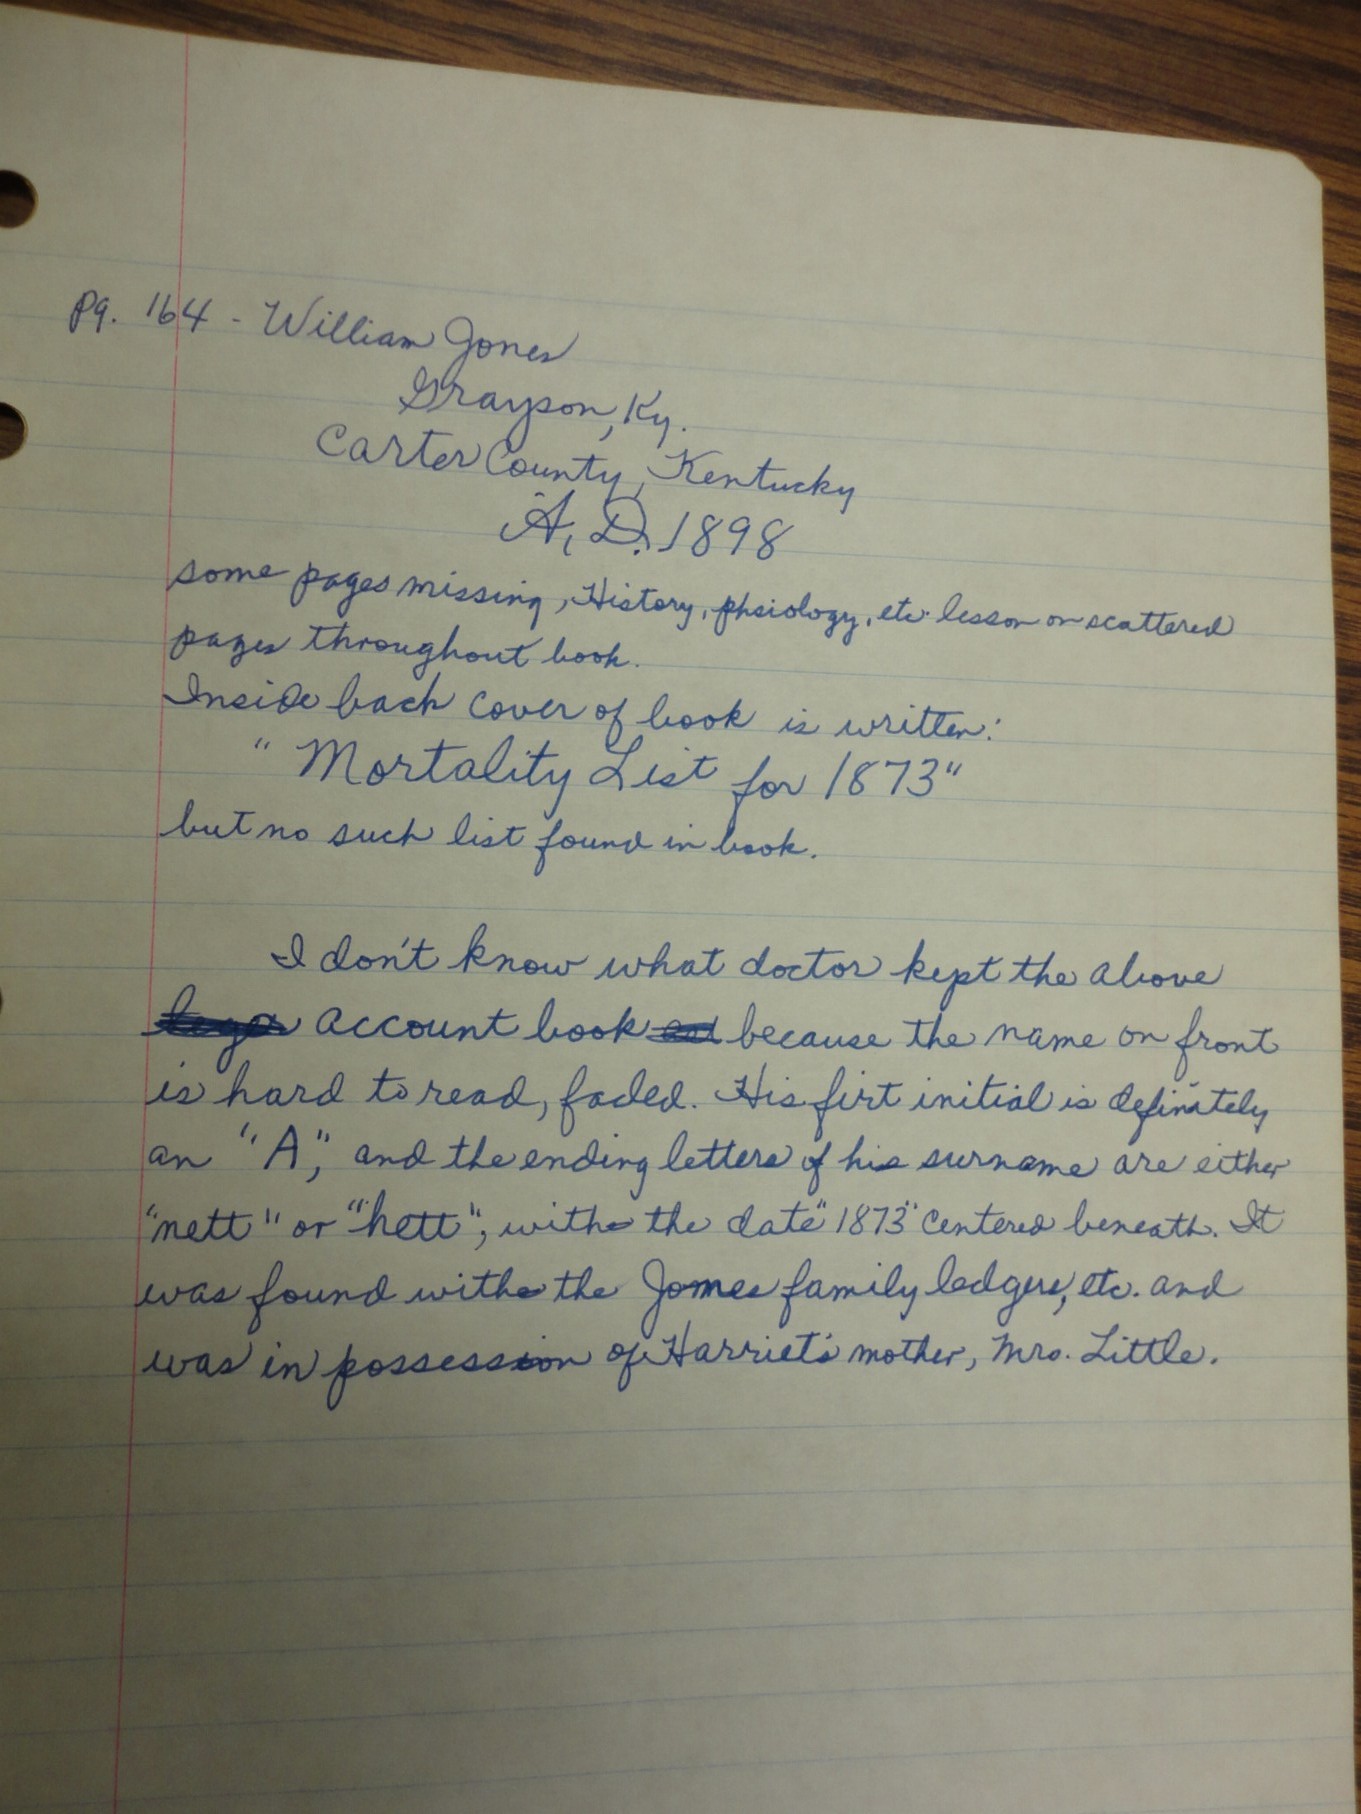 Pg. 164 - William Jones
Grayson, Ky.
Carter County, Kentucky
A. D. 1898
some pages missing, History, phsiology, etc. lesson on scattered
pages throughout book.
Inside back cover of book is written:
"Mortality List for 1873"
but no such list found in book.
I don't know what doctor kept the above
account book because the name on front
is hard to read, faded. His firt initial is definitely
an "A", and the ending letters of his surname are either
"nett" or "hett", with the date "1873" centered beneath. It
was found with the Jones family ledgers, etc. and
was in possession of Harriet's mother, Mrs. Little.